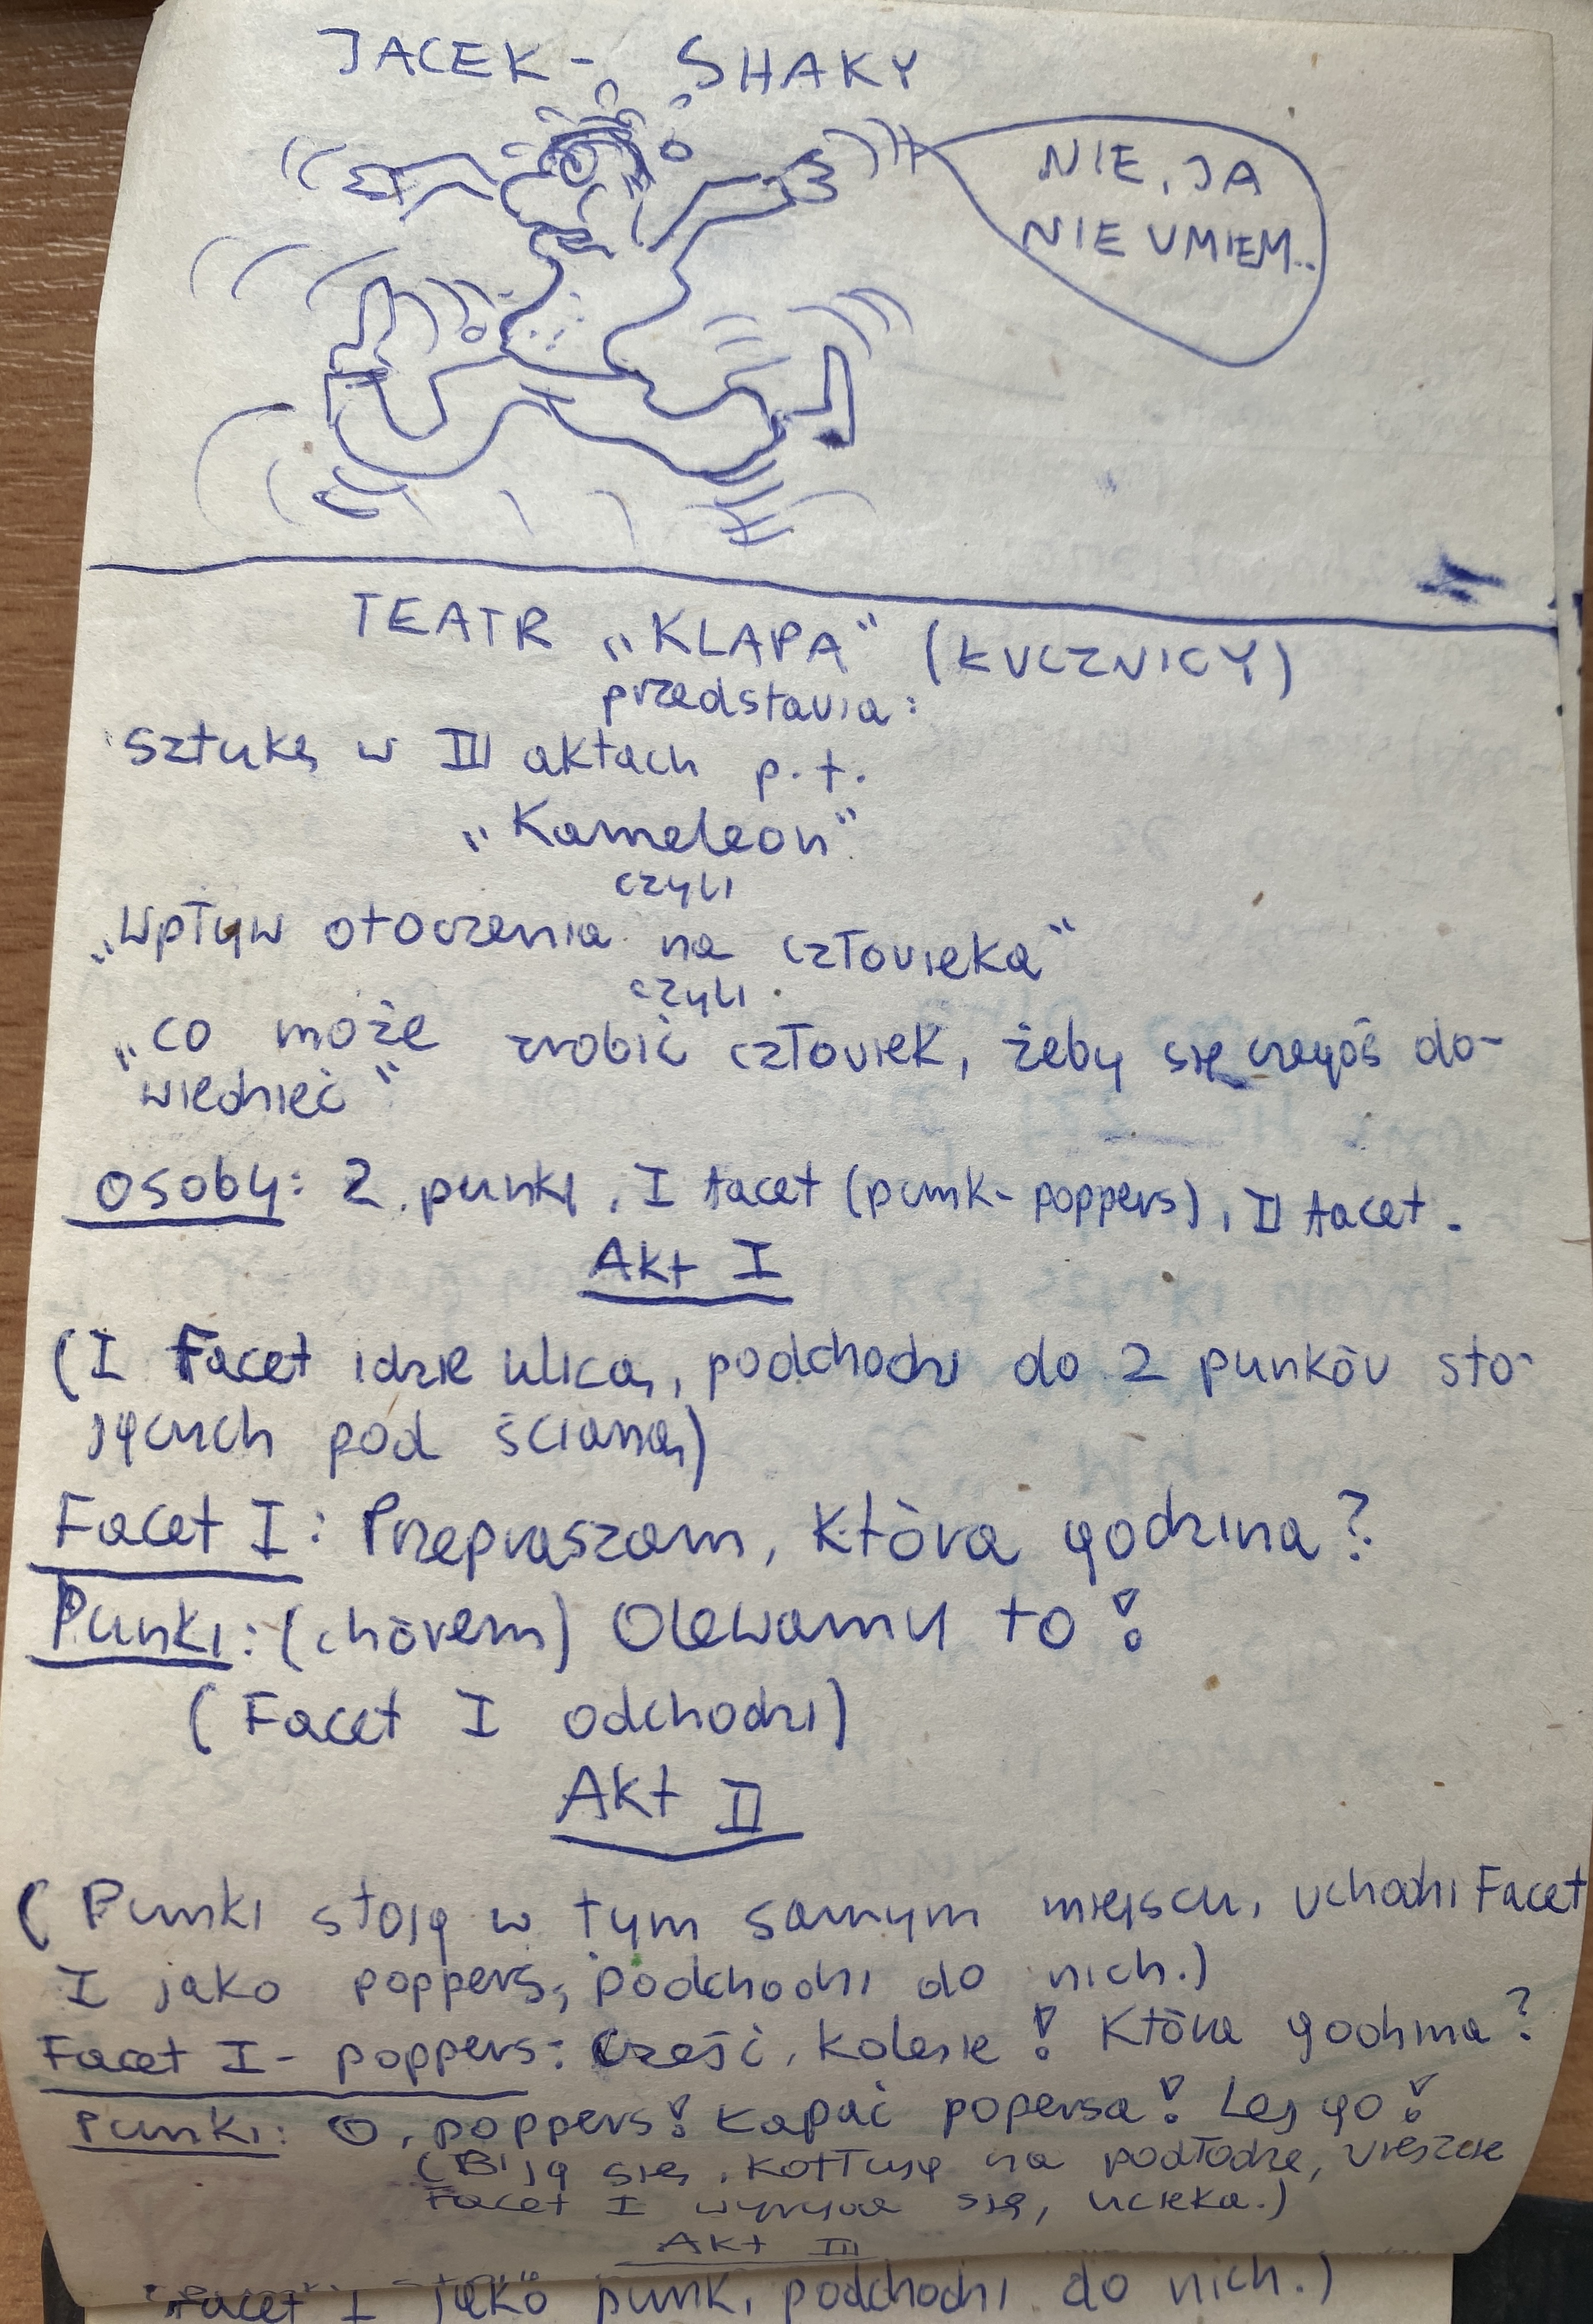 JACEK - SHAKY
NIE, JA
NIE UMIEM..
TEATR „KLAPA" (ŁUCZNICY)
przedstawia:
sztukę w III aktach p.t.
„Kameleon"
czyli
„Wpływ otoczenia na człowieka"
czyli
„co może zrobić człowiek, żeby się czegoś do-
wiedzieć"
OSOBY: 2 punki, I facet (punk-poppers), II facet.
Akt I
(I Facet idzie ulicą, podchodzi do 2 punków sto-
jących pod ścianą)
Facet I: Przepraszam, która godzina?
Punki: (chórem) Olewamy to!
(Facet I odchodzi)
Akt II
(Punki stoją w tym samym miejscu, wchodzi Facet
I jako poppers, podchodzi do nich.)
Facet I - poppers: Cześć, kolesie! Która godzina?
Punki: O, poppers! Łapać popersa! Lej go!
(Biją się, kotłują na podłodze, wreszcie
Facet I wyrywa się, ucieka.)
Akt III
Facet I jako punk, podchodzi do nich.)